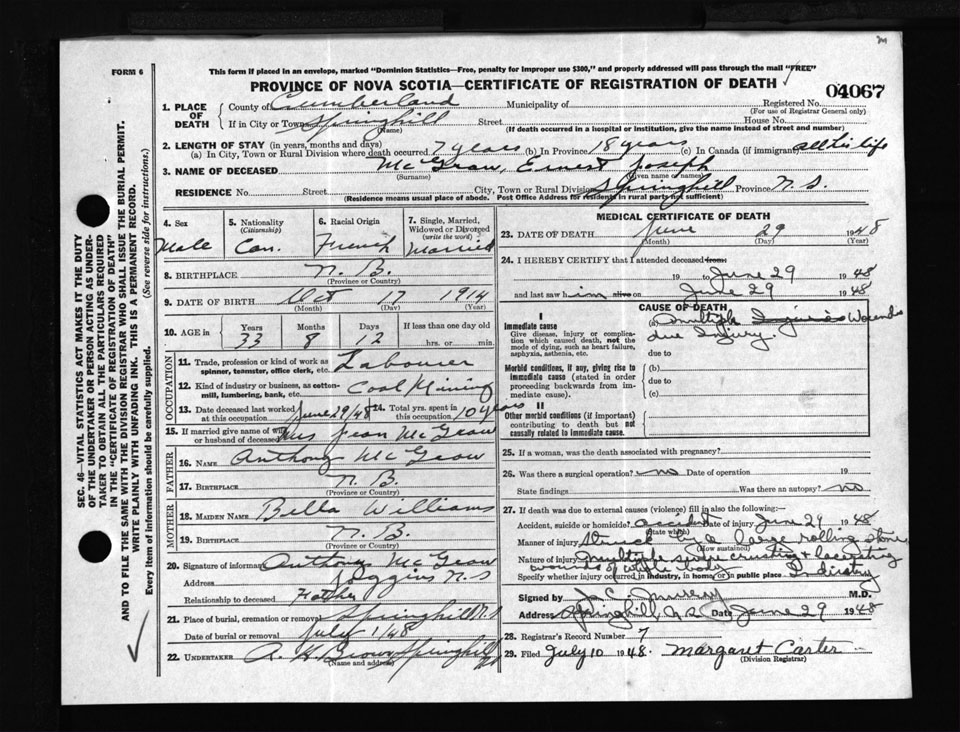 FORM 6
This form if placed in an envelope, marked "Dominion Statistics—Free, penalty for improper use $300," and properly addressed will pass through the mail "FREE"
PROVINCE OF NOVA SCOTIA—CERTIFICATE OF REGISTRATION OF DEATH
04067
1. PLACE OF DEATH
County of Cumberland Municipality of Registered No.
(For use of Registrar General only)
If in City or Town Springhill Street House No.
(Name) (If death occurred in a hospital or institution, give the name instead of street and number)
2. LENGTH OF STAY (in years, months and days)
(a) In City, Town or Rural Division where death occurred 7 years (b) In Province 18 years (c) In Canada (if immigrant) all his life
3. NAME OF DECEASED McGraw, Ernest Joseph
(Surname) (Given names)
RESIDENCE No. Street City, Town or Rural Division Springhill Province N. S.
(Residence means usual place of abode. Post Office Address for residents in rural parts not sufficient)
4. Sex
Male
5. Nationality
(Citizenship)
Can.
6. Racial Origin
French
7. Single, Married, Widowed or Divorced
(write the word)
Married
8. BIRTHPLACE N. B.
(Province or Country)
9. DATE OF BIRTH Oct 17 1914
(Month) (Day) (Year)
10. AGE in Years Months Days If less than one day old
33 8 12 hrs. or min.
OCCUPATION
11. Trade, profession or kind of work as spinner, teamster, office clerk, etc. Labourer
12. Kind of industry or business, as cotton-mill, lumbering, bank, etc. Coal Mining
13. Date deceased last worked at this occupation June 29/48
14. Total yrs. spent in this occupation 10 years
15. If married give name of wife or husband of deceased Mrs Jean McGraw
FATHER
16. NAME Anthony McGraw
17. BIRTHPLACE N. B.
(Province or Country)
MOTHER
18. MAIDEN NAME Bella Williams
19. BIRTHPLACE N. B.
(Province or Country)
20. Signature of informant Anthony McGraw
Address Joggins N. S
Relationship to deceased Father
21. Place of burial, cremation or removal Springhill N.S
Date of burial or removal July 1/48
22. UNDERTAKER A. H. Brown Springhill
(Name and address)
MEDICAL CERTIFICATE OF DEATH
23. DATE OF DEATH June 29 1948
(Month) (Day) (Year)
24. I HEREBY CERTIFY that I attended deceased from
19 to June 29 1948
and last saw him alive on June 29 1948
CAUSE OF DEATH
I
Immediate cause
Give disease, injury or complication which caused death, not the mode of dying, such as heart failure, asphyxia, asthenia, etc.
(a) Multiple Injuries Wounds
due Injury.
due to
Morbid conditions, if any, giving rise to immediate cause (stated in order proceeding backwards from immediate cause).
(b)
due to
(c)
II
Other morbid conditions (if important) contributing to death but not causally related to immediate cause.
25. If a woman, was the death associated with pregnancy?
26. Was there a surgical operation? no Date of operation 19
State findings Was there an autopsy? no
27. If death was due to external causes (violence) fill in also the following:
Accident, suicide or homicide? accident Date of injury June 29 1948
(State which)
Manner of injury Struck by a large rolling stone
(How sustained)
Nature of injury multiple severe crushing + lacerating wounds of whole body
Specify whether injury occurred in industry, in home, or in public place Industry
Signed by J. C. Murray M.D.
Address Springhill N.S. Date June 29 1948
28. Registrar's Record Number 7
29. Filed July 10 1948. Margaret Carter
(Division Registrar)
SEC. 46—VITAL STATISTICS ACT MAKES IT THE DUTY
OF THE UNDERTAKER OR PERSON ACTING AS UNDER-
TAKER TO OBTAIN ALL THE PARTICULARS REQUIRED
IN THE "CERTIFICATE OF REGISTRATION OF DEATH"
AND TO FILE THE SAME WITH THE DIVISION REGISTRAR WHO SHALL ISSUE THE BURIAL PERMIT.
WRITE PLAINLY WITH UNFADING INK. THIS IS A PERMANENT RECORD.
Every item of information should be carefully supplied. (See reverse side for instructions.)